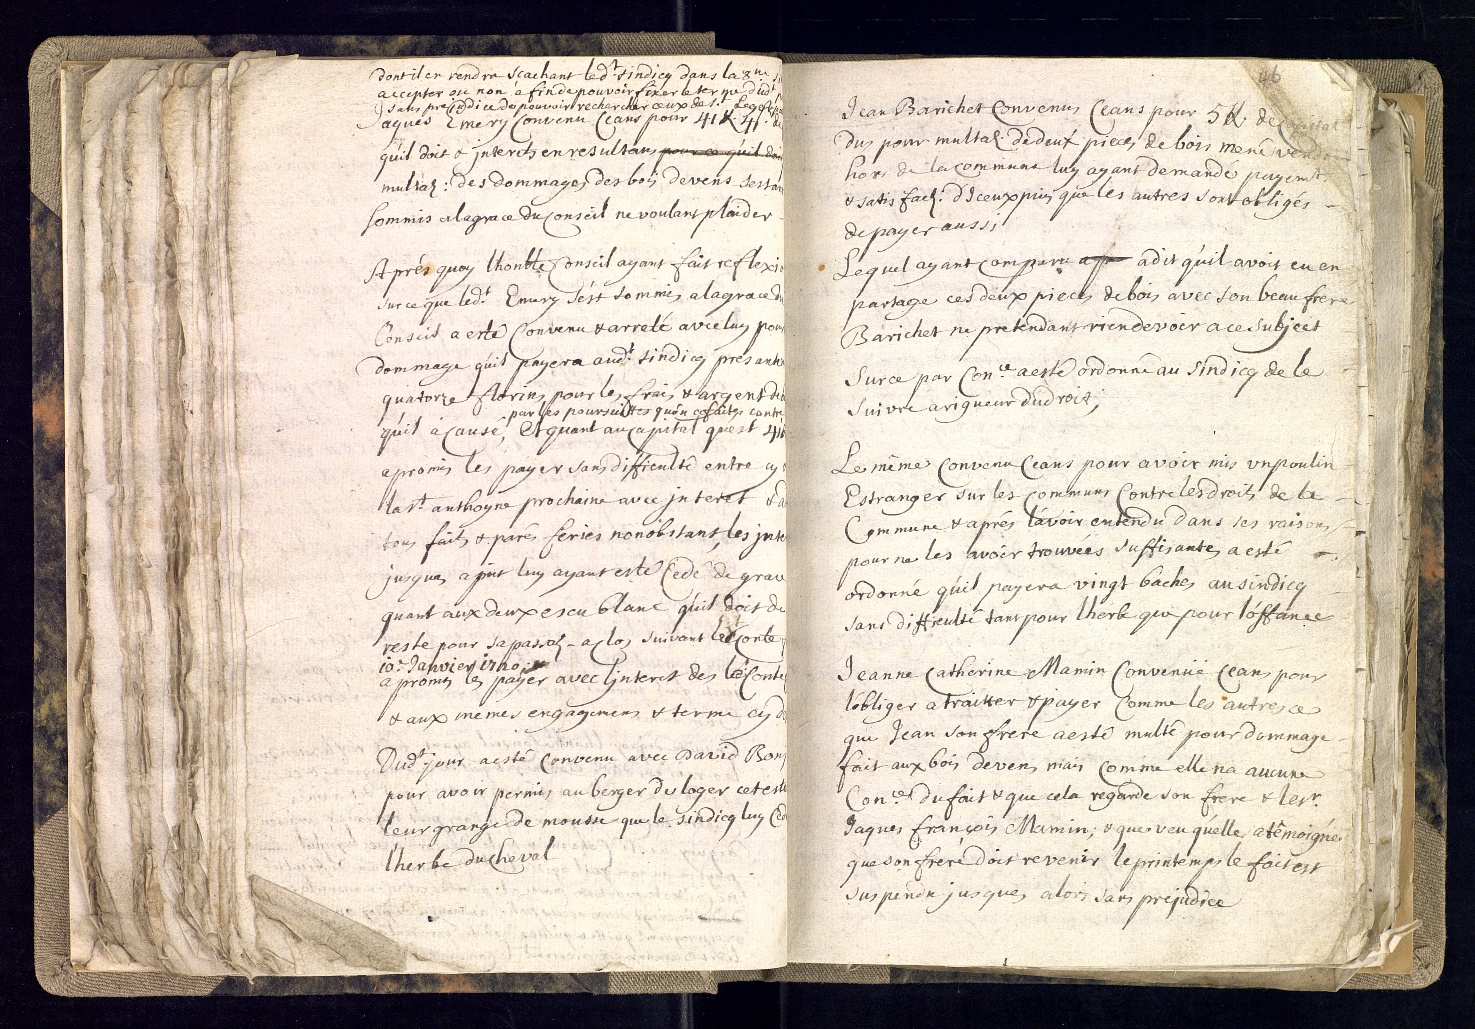 dont il en rendra scachant led.t sindicq dans la 8.ne
accepter ou non à fin de pouvoir fixer le terme dud.t
sans préjudice de pouvoir rechercher ceux de s.t Legé
Jaques Emery Convenu Ceans pour 41 ff. 4 s.
qu'il doit & interets en resultans pour ce qu'il doit
multaõ: des dommages des bois devens sestan
sommis a la grace du Conseil ne voulant plaider
Aprés quoy lhonble Conseil ayant fait reflexi
sur ce que led.t Emery s'est sommis a la grace du
Conseil a esté Convenu & arreté avec luy pour
dommage qu'il payera aud.t sindicq presante
quatorze florins pour les frais & argent de
par les poursuittes qu'on a faites contre
qu'il a causé, Et quant au Capital qu'est 41
a promis les payer sans difficulté entre cy
la s.t anthoyne prochaine avec interet &
tous faits & parés feries nonobstant, les inte
jusques a p.nt luy ayant esté Cedé de grace
quant aux deux escu blanc qu'il doit de
reste pour sa passaõ a clos suivant le Conte
10.e Janvier 1720
a promis les payer avec l'interet dès le Conte
& aux memes engagemens & terme cy d
Dud.t jour a esté Convenu avec David Bon
pour avoir permis au berger de loger cet esté
leur grange de mousse que le sindicq luy Ced
l'herbe du Cheval
46
Jean Barichet Convenus Ceans pour 5 ff. de Capital
dus pour multaõ: de deux pieces de bois mené vendre
hors de la commune luy ayant demandé payem.t
& satisfacõ: d'Iceux puis que les autres sont obligés
de payer aussi
Lequel ayant comparu a dit qu'il avoit eu en
partage ces deux pieces de bois avec son beau frere
Barichet ne pretendant rien devoir a ce subject
Sur ce par Con.ce a esté ordonné au sindicq de le
suivre a rigueur du droit,
Le même Convenu Ceans pour avoir mis un poulin
Estranger sur les communs Contre les droits de la
Commune & aprés l'avoir entendu dans ses raisons
pour ne les avoir trouvées suffisantes a esté
ordonné qu'il payera vingt baches au sindicq
sans difficulté tant pour lherbe que pour l'offance
Jeanne Catherine Mamin Convenüe Ceans pour
l'obliger a traitter & payer Comme les autres ce
que Jean son frere a esté multé pour dommage
fait aux bois devens mais Comme elle na aucune
Con.ce du fait & que cela regarde son frere & le s.r
Jaques françois Mamin; & que veu qu'elle a témoigné
que son frere doit revenir le printemps le fait est
suspendu jusques alors sans préjudice